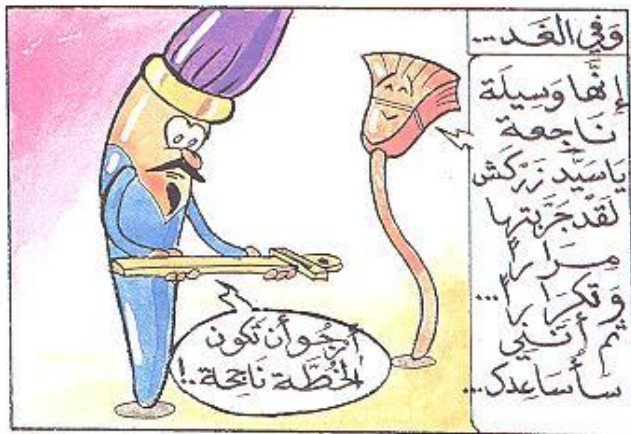 وَفِي الغَد...
إِنَّهَا وَسِيلَة
نَاجِعة
يَاسَيِّد زَرْكَش
لَقَدْ جَرَّبتها
مِرَاراً
وَتكرَاراً...
ثم أنَّنِي
سَأسَاعِدك...
أرجُو أن تَكون
الخُطَّة نَاجِحة..!